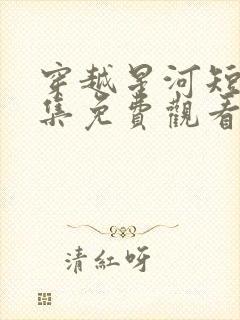 穿越星河短
集免費觀看
清紅呀